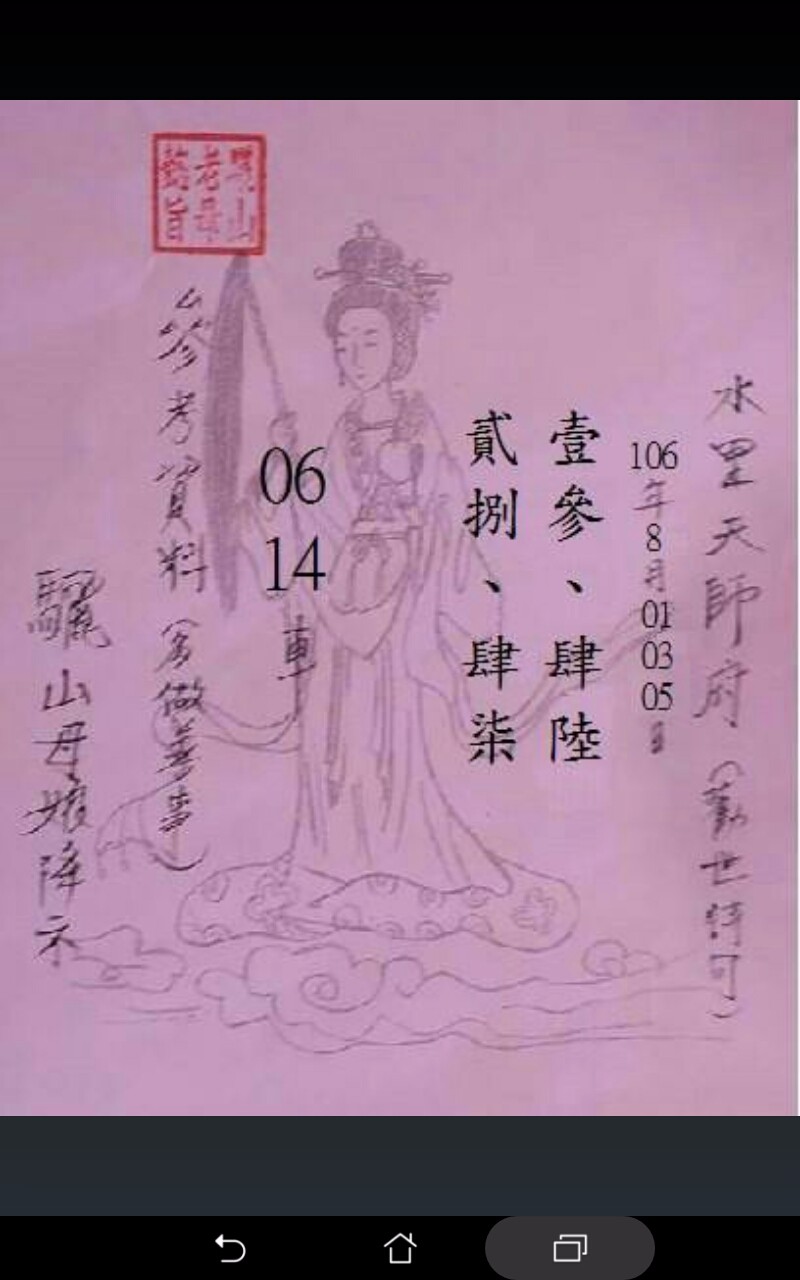 水里天師府(勸世許可)
106年8月01 03 05日
壹參、肆陸
貳捌、肆柒
06 14車
參考資料(多做善事)
驪山母娘降示
黎山老母懿旨